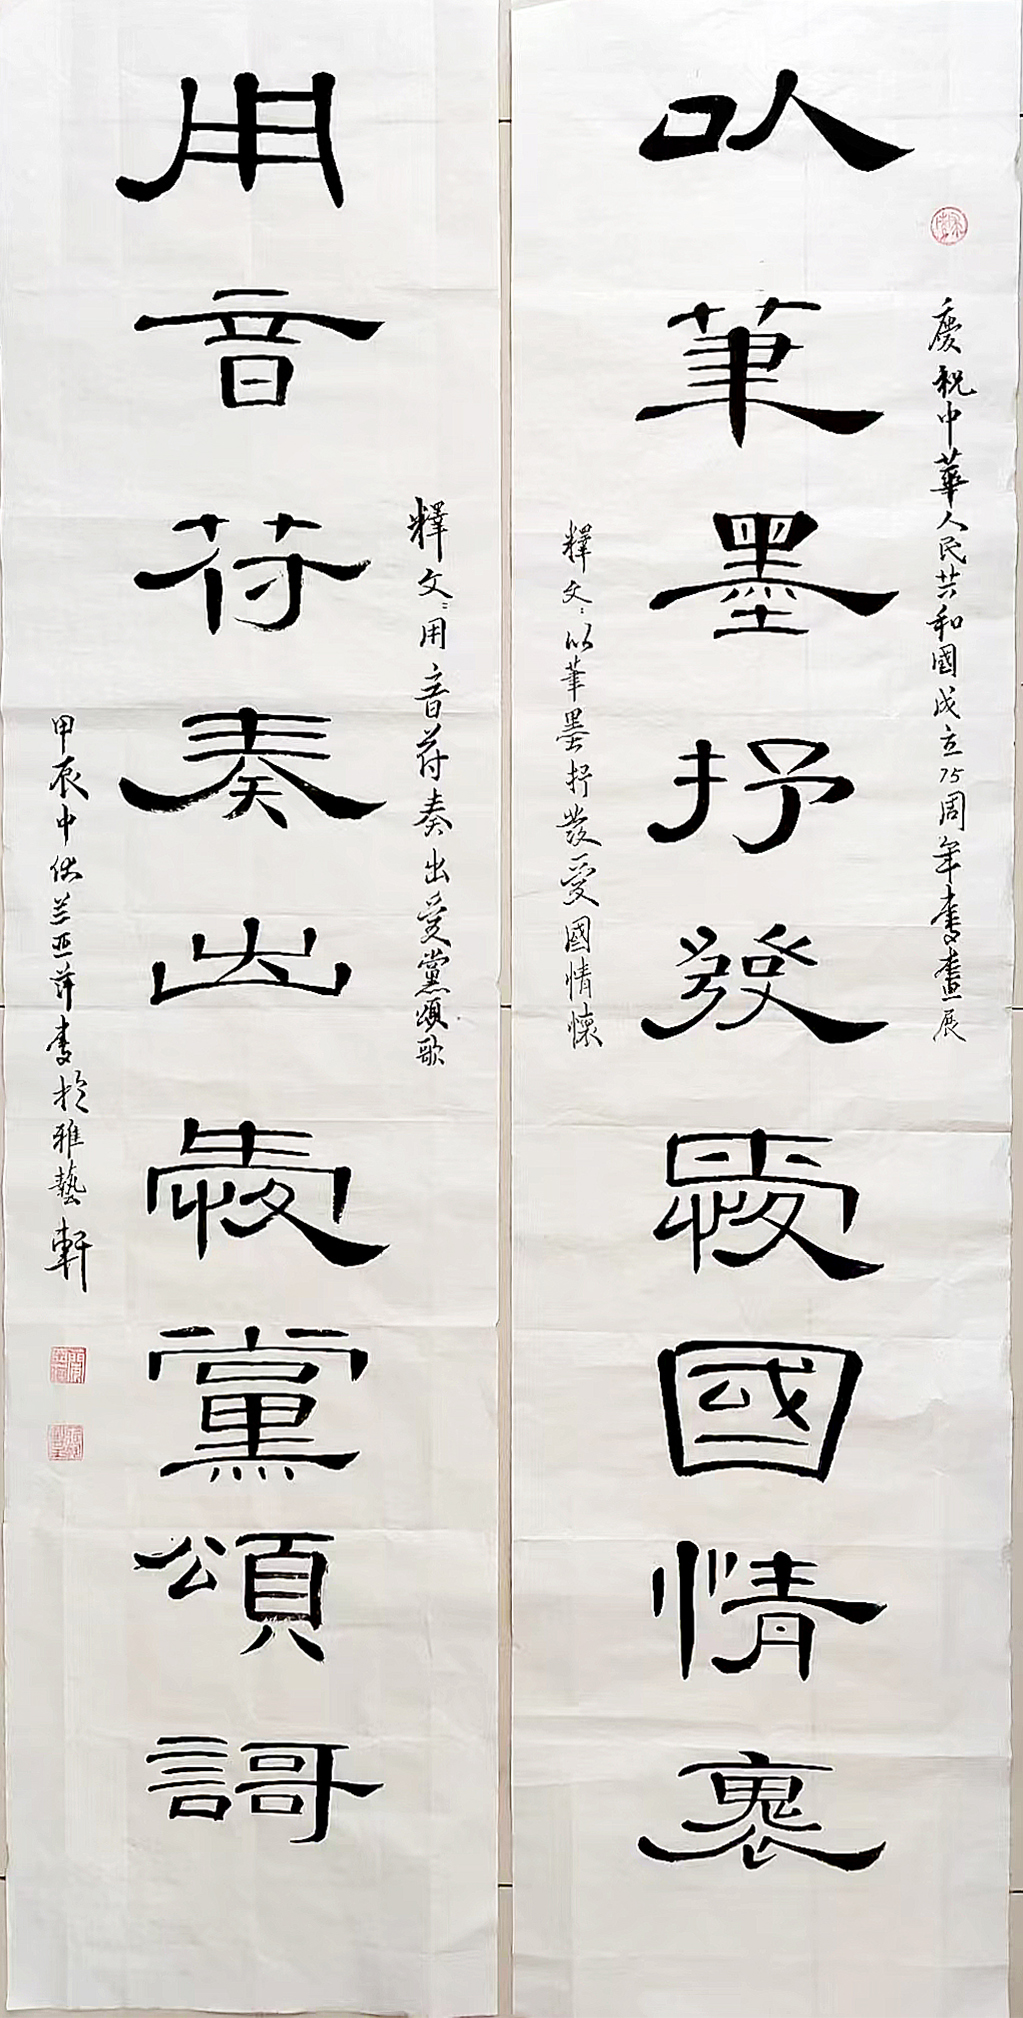 慶祝中華人民共和國成立75周年書畫展
以筆墨抒發愛國情褱
釋文：以筆墨抒發愛國情懷
釋文：用音符奏出愛黨頌歌
用音符奏出愛黨頌謌
甲辰中伏兰亚萍書於雅藝軒